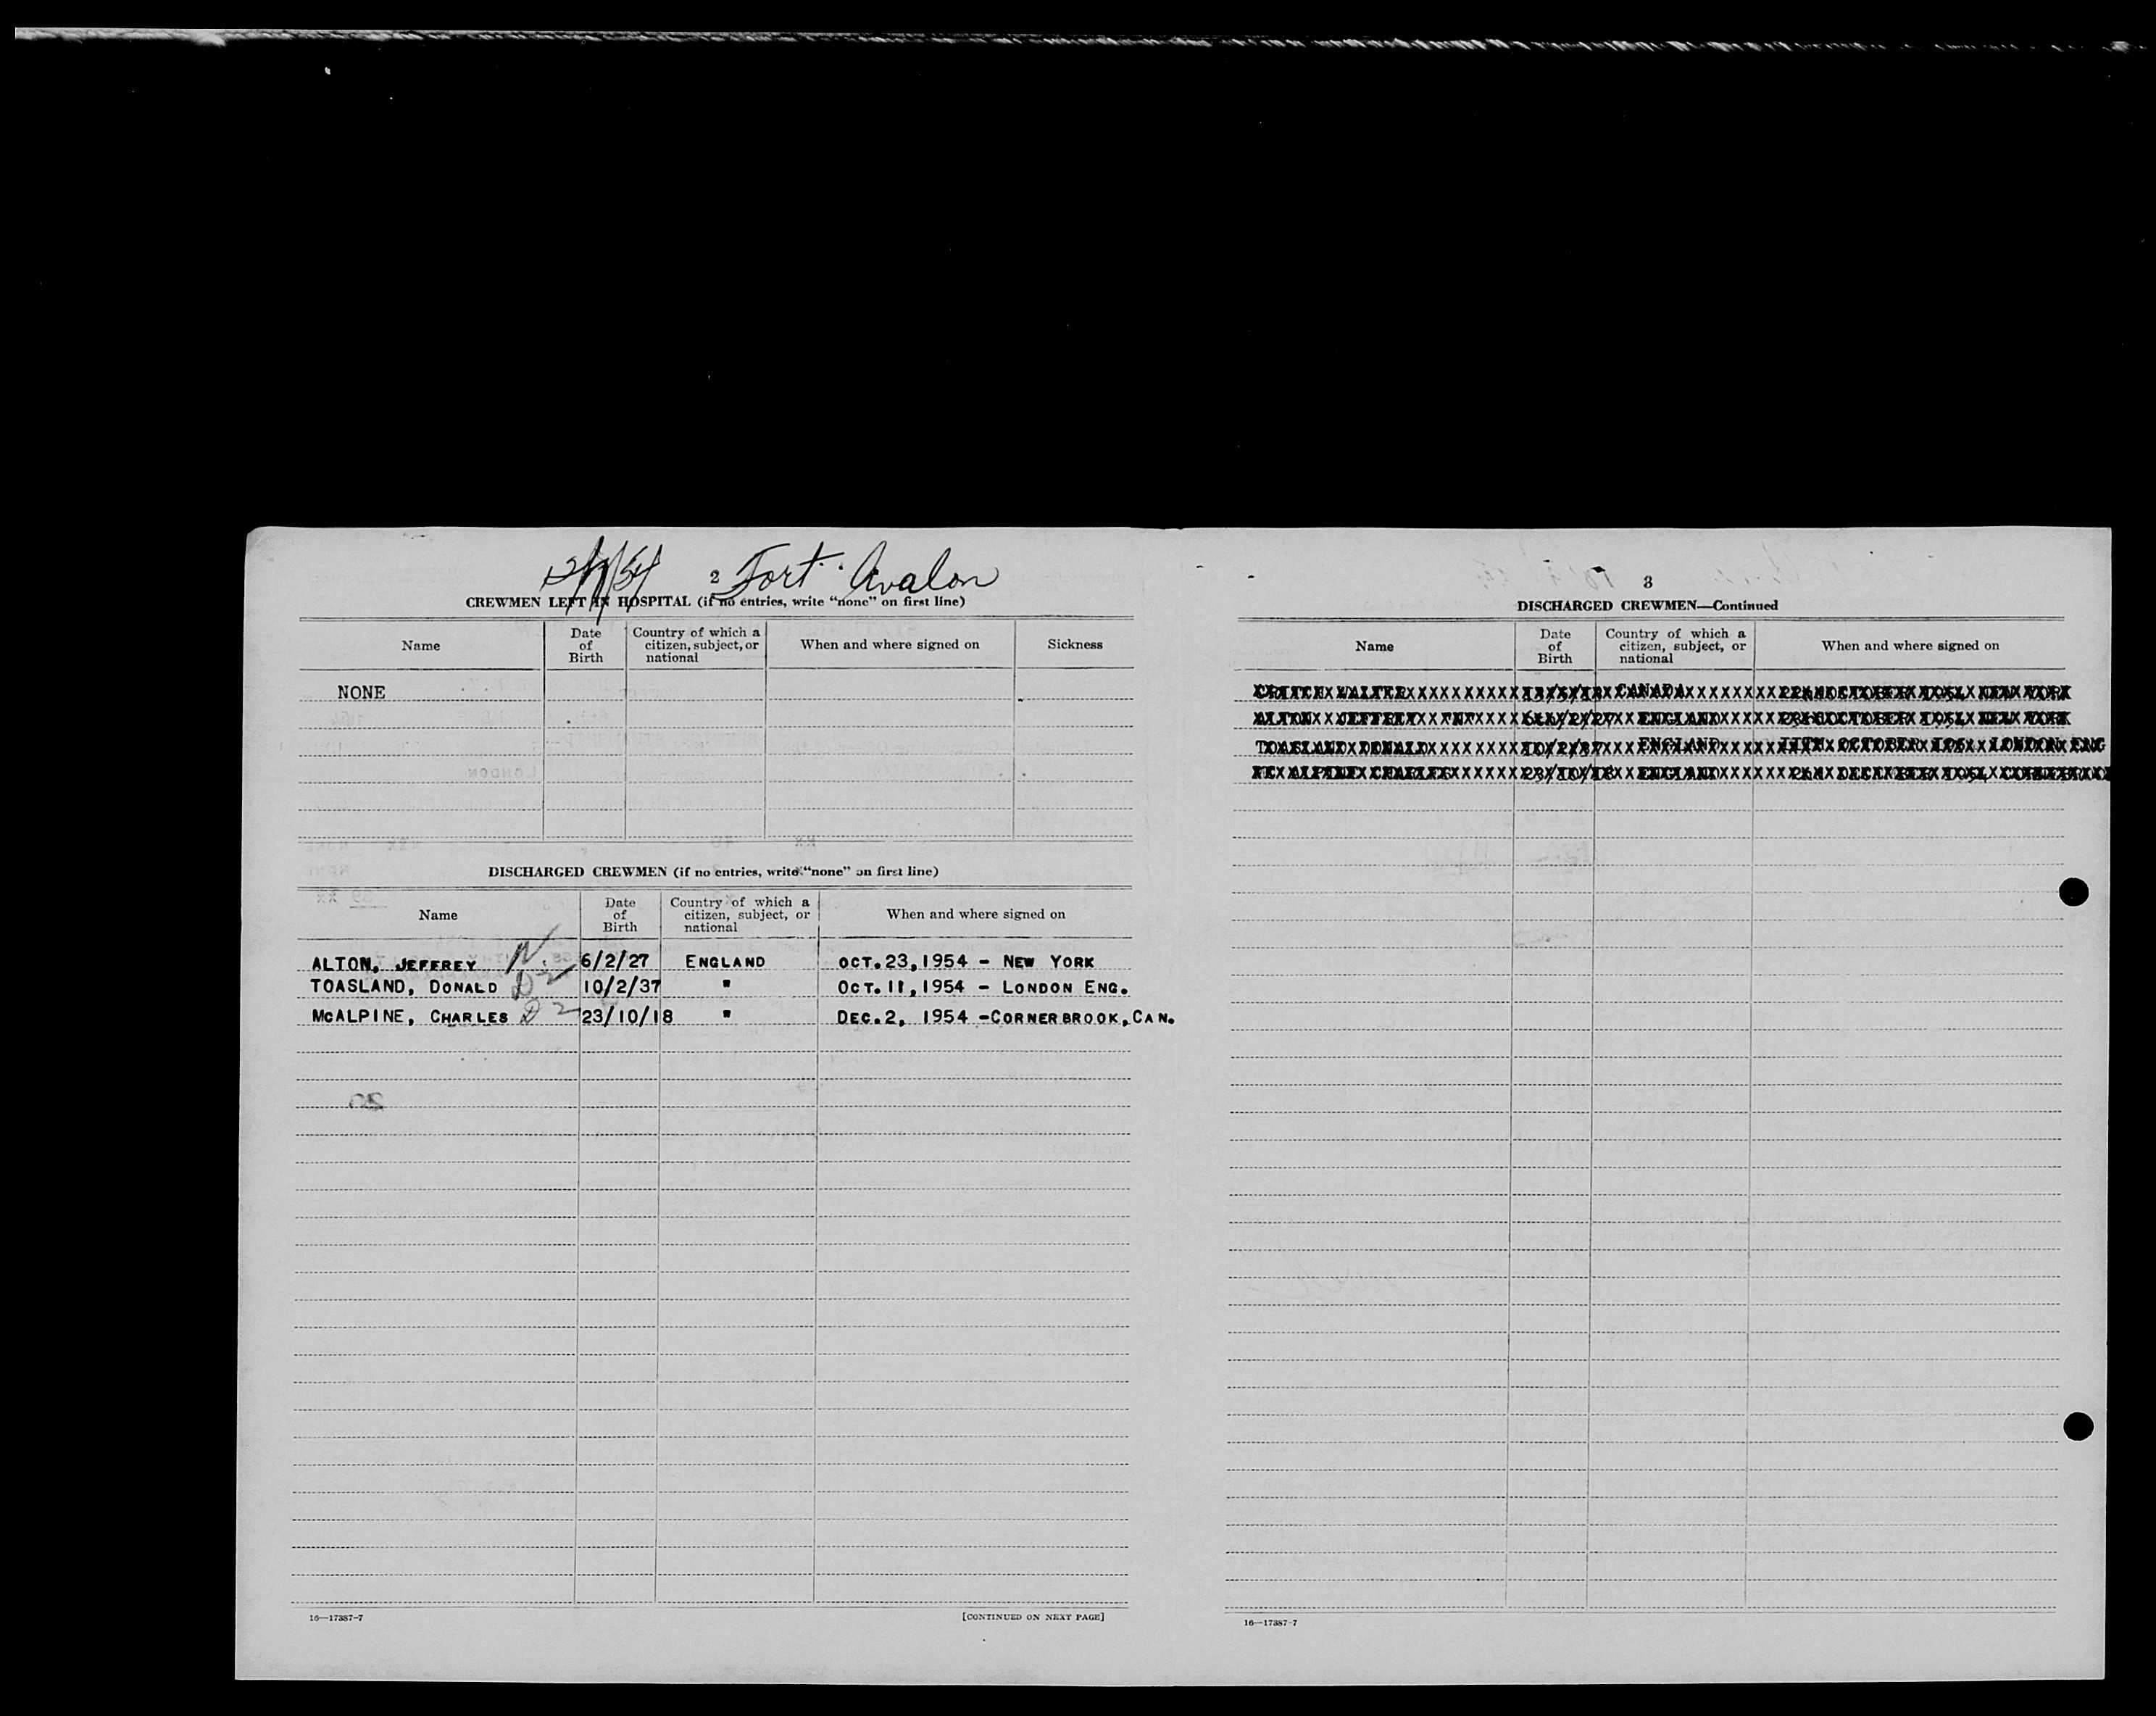 2 Fort Avalon
CREWMEN LEFT IN HOSPITAL (if no entries, write “none” on first line)
Name Date of Birth Country of which a citizen, subject, or national When and where signed on Sickness
NONE
DISCHARGED CREWMEN (if no entries, write “none” on first line)
Name Date of Birth Country of which a citizen, subject, or national When and where signed on
ALTON, JEFFREY N. 6/2/27 ENGLAND OCT.23,1954 - NEW YORK
TOASLAND, DONALD D2 10/2/37 " OCT.11,1954 - LONDON ENG.
MCALPINE, CHARLES D2 23/10/18 " DEC.2, 1954 -CORNERBROOK,CAN.
16—17387-7 [CONTINUED ON NEXT PAGE]
3
DISCHARGED CREWMEN—Continued
Name Date of Birth Country of which a citizen, subject, or national When and where signed on
WALTER CANADA OCTOBER 1954 NEW YORK
ALTON JEFFREY ENGLAND OCTOBER 1954 NEW YORK
TOASLAND DONALD 10/2/37 ENGLAND 11TH OCTOBER LONDON ENG
MC ALPINE CHARLES 23/10/18 ENGLAND DECEMBER 1954
16—17387-7